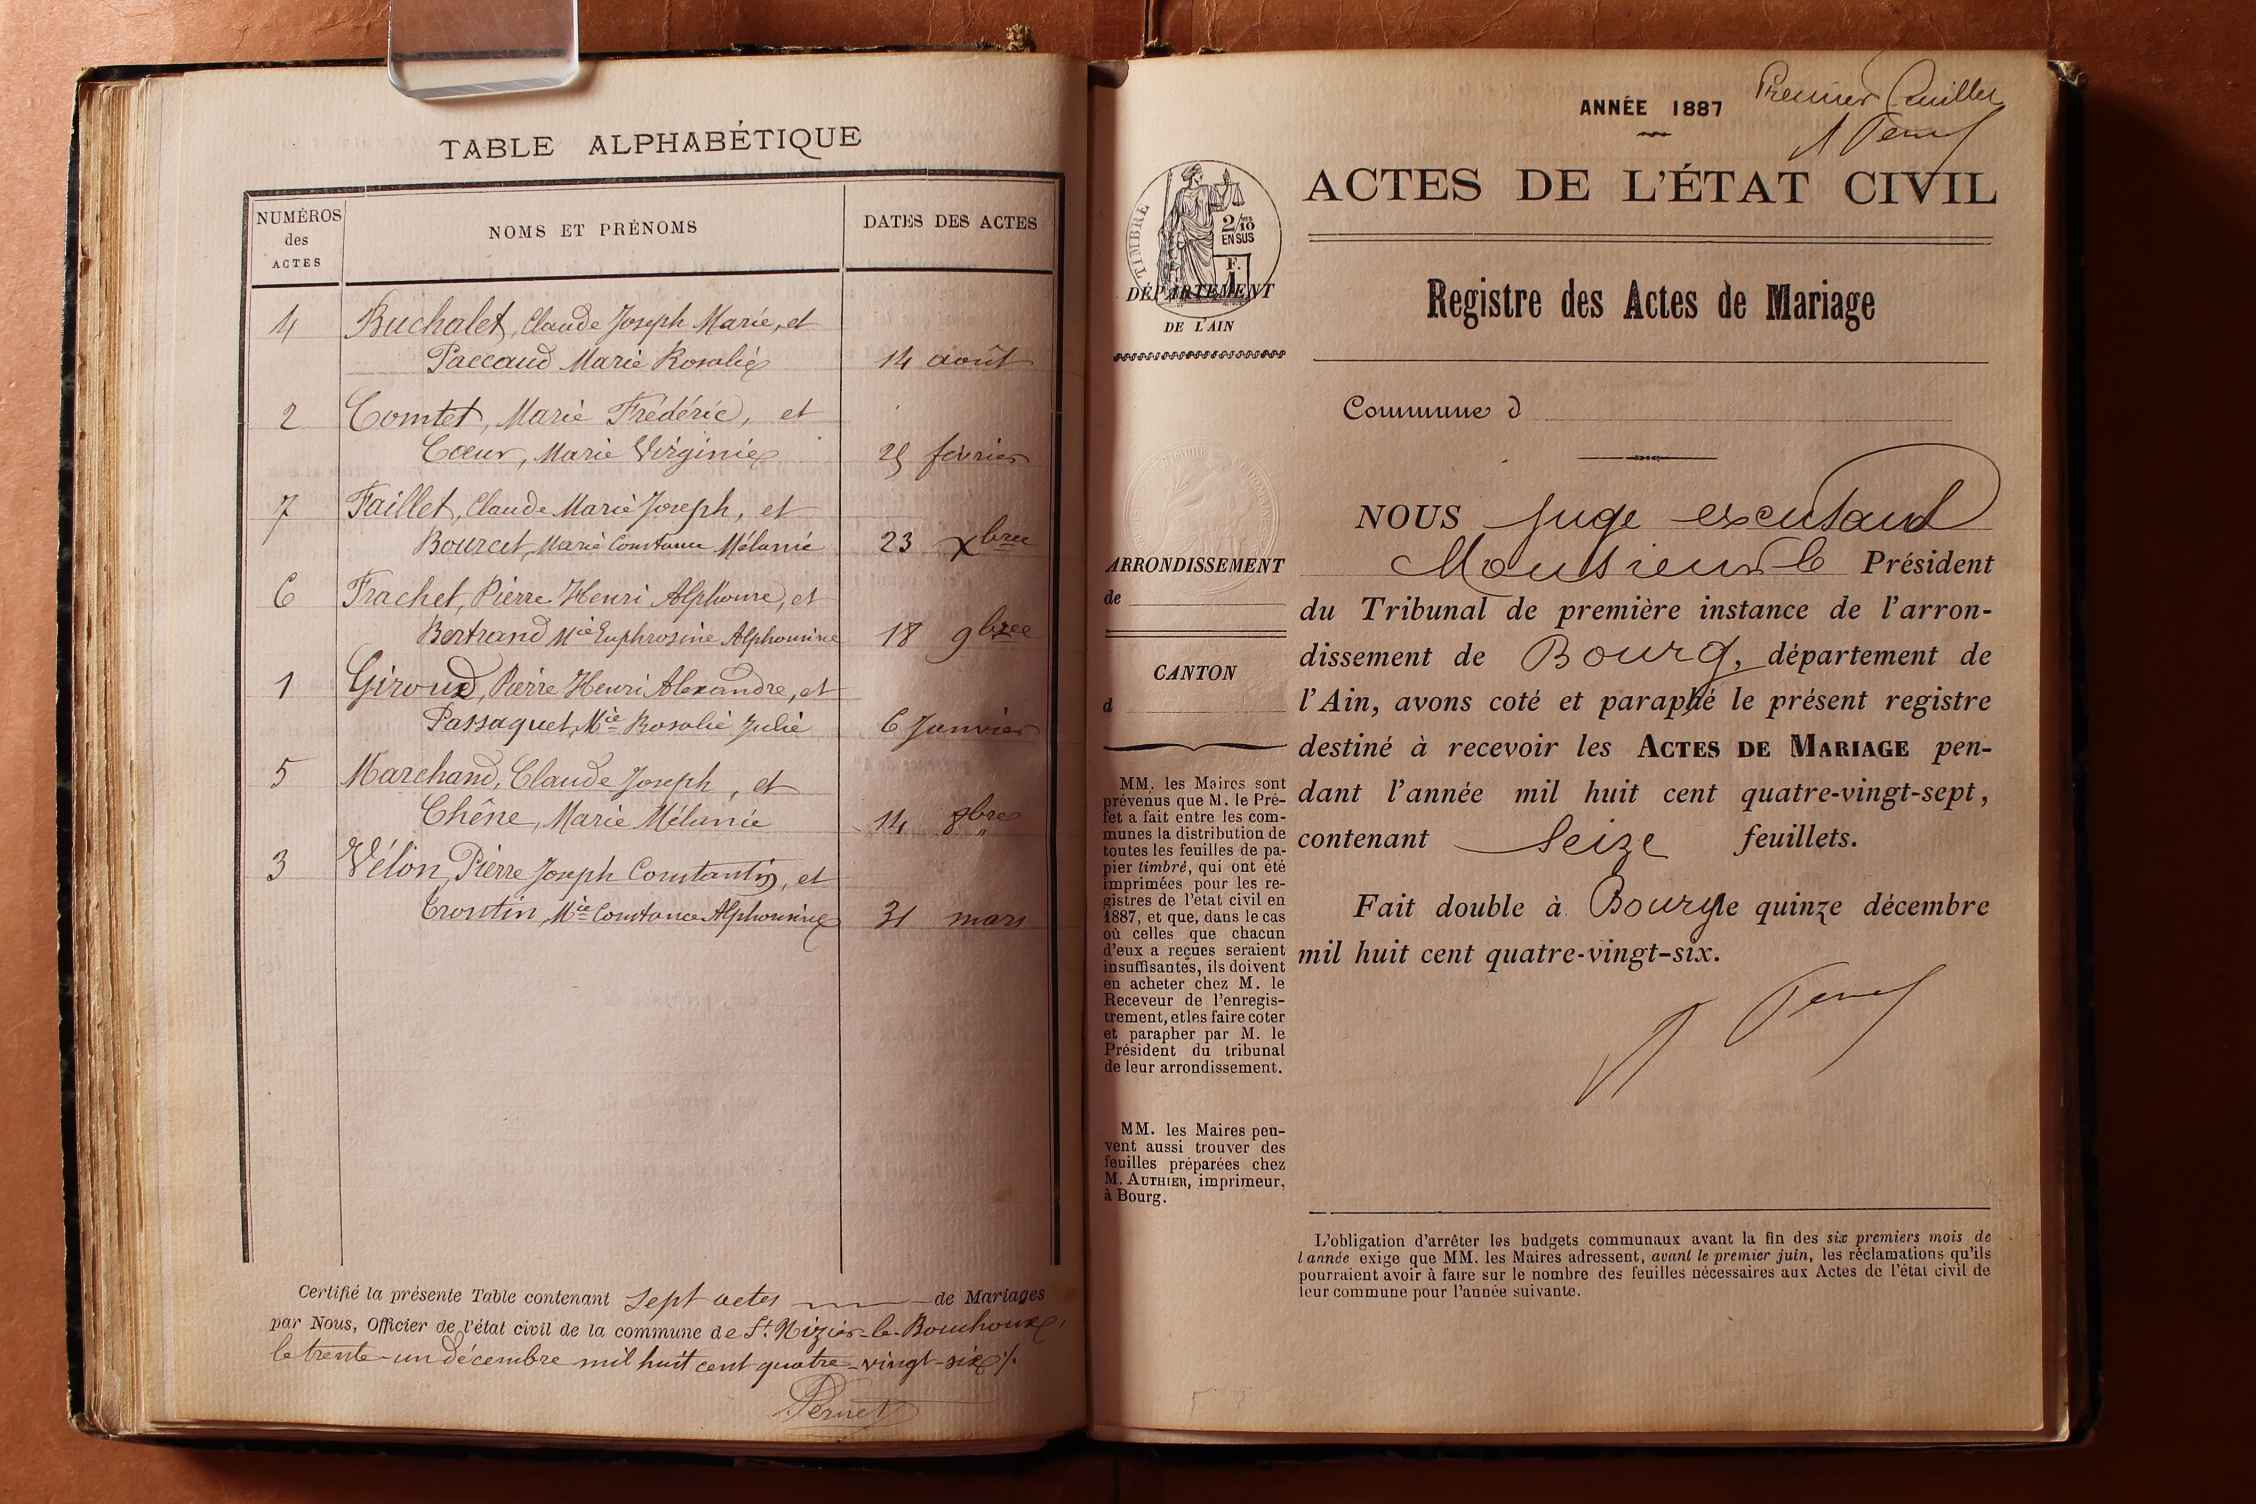 TABLE ALPHABÉTIQUE
NUMÉROS des ACTES
NOMS ET PRÉNOMS
DATES DES ACTES
4 Buchalet, Claude Joseph Marie, et
Paccaud Marie Rosalie 14 août
2 Comtet, Marie Frédéric, et
Cœur, Marie Virginie 25 février
7 Faillet, Claude Marie Joseph, et
Bourcet, Marie Constance Mélanie 23 Xbre
6 Frachet, Pierre Henri Alphonse, et
Bertrand Mie Euphrosine Alphonsine 18 9bre
1 Giroud, Pierre Henri Alexandre, et
Passaquet, Mie Rosalie Julie 6 Janvier
5 Marchand, Claude Joseph, et
Chêne, Marie Mélanie 14 8bre
3 Vélon, Pierre Joseph Constantin, et
Trontin, Mie Constance Alphonsine 31 mars
Certifié la présente Table contenant sept actes de Mariages
par Nous, Officier de l'état civil de la commune de St. Nizier-le-Bouchoux,
le trente-un décembre mil huit cent quatre-vingt-six %.
Pernet
Premier feuillet
ANNÉE 1887
ACTES DE L'ÉTAT CIVIL
TIMBRE
2/10 EN SUS
F. 1
DÉPARTEMENT
DE L'AIN
Registre des Actes de Mariage
Commune d
ARRONDISSEMENT
de
CANTON
d
MM. les Maires sont
prévenus que M. le Pré-
fet a fait entre les com-
munes la distribution de
toutes les feuilles de pa-
pier timbré, qui ont été
imprimées pour les re-
gistres de l'état civil en
1887, et que, dans le cas
où celles que chacun
d'eux a reçues seraient
insuffisantes, ils doivent
en acheter chez M. le
Receveur de l'enregis-
trement, et les faire coter
et parapher par M. le
Président du tribunal
de leur arrondissement.
MM. les Maires peu-
vent aussi trouver des
feuilles préparées chez
M. AUTHIER, imprimeur,
à Bourg.
NOUS Juge excusant
Monsieur le Président
du Tribunal de première instance de l'arron-
dissement de Bourg, département de
l'Ain, avons coté et paraphé le présent registre
destiné à recevoir les ACTES DE MARIAGE pen-
dant l'année mil huit cent quatre-vingt-sept,
contenant Seize feuillets.
Fait double à Bourg le quinze décembre
mil huit cent quatre-vingt-six.
L'obligation d'arrêter les budgets communaux avant la fin des six premiers mois de
l'année exige que MM. les Maires adressent, avant le premier juin, les réclamations qu'ils
pourraient avoir à faire sur le nombre des feuilles nécessaires aux Actes de l'état civil de
leur commune pour l'année suivante.